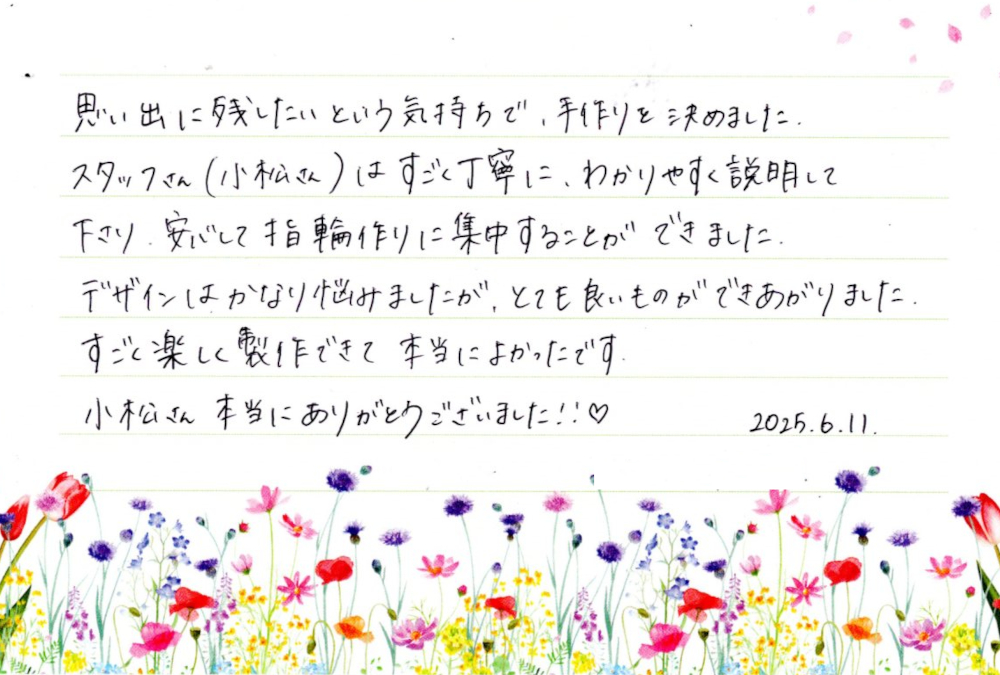 思い出に残したいという気持ちで、手作りを決めました.
スタッフさん(小松さん)はすごく丁寧に、わかりやすく説明して
下さり、安心して指輪作りに集中することができました.
デザインはかなり悩みましたが、とても良いものができあがりました.
すごく楽しく製作できて本当によかったです.
小松さん 本当にありがとうございました!!♡ 2025.6.11.